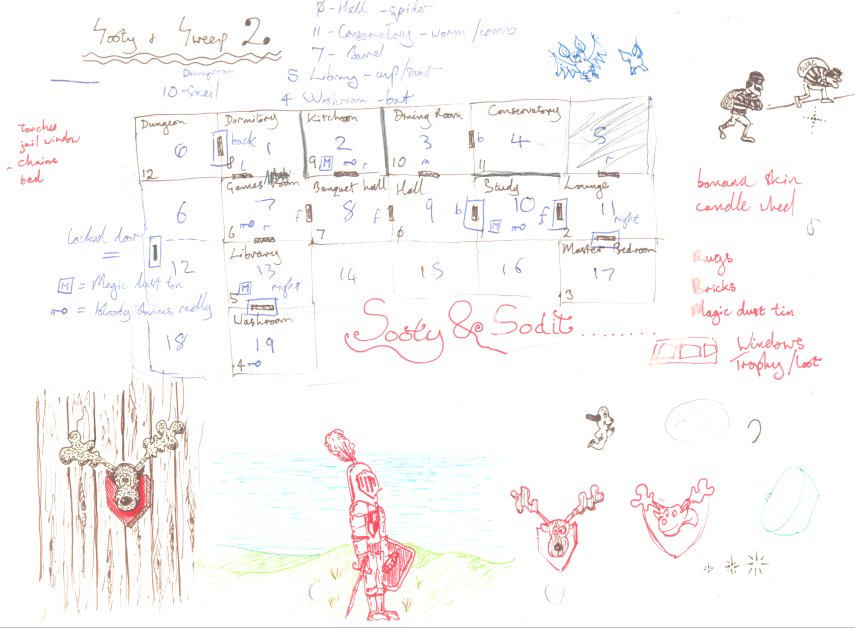 Sooty & Sweep 2.
Dungeon
10 - Snail
0 - Hall - spider
11 - Conservatory - worm / comb
7 - Barrel
5 Library - cup/sand
4 Washroom - bat
Torches
jail window
- chains
bed
Dungeon
0
12
Dormitory
back
1
8
L
Kitchen
2
9
M
r
Dining Room
3
10
m
Conservatory
b
4
11
5
r
SWAG
6
Games Room
7
6
r
Banquet hall
f
8
7
Hall
f
9
6
Study
b
10
f
1
M
Lounge
11
right
2
Locked door
=
M = Magic dust tin
= bloody obvious really
12
Library
13
M right
5
14
15
16
Master Bedroom
17
3
18
Washroom
19
4
Sooty & Sodit........
banana skin
candle wheel
5
Rugs
Bricks
Magic dust tin
Windows
Trophy/loot